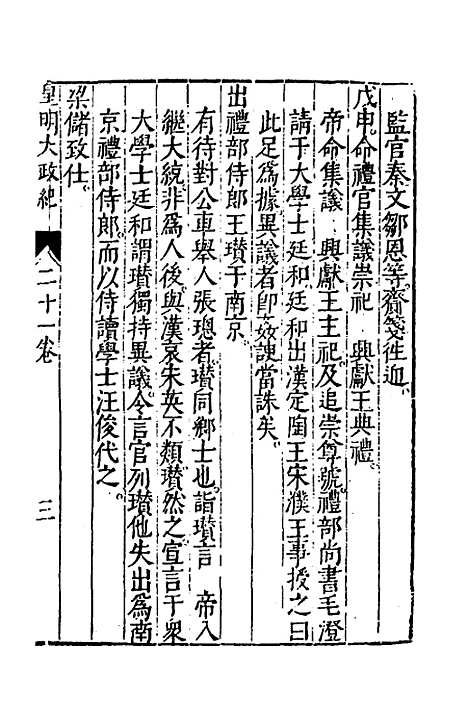 監官秦文鄒恩等齎箋往迎
戊申命禮官集議崇祀　興獻王典禮
帝命集議　興獻王主祀及追崇尊號禮部尚書毛澄
請于大學士廷和廷和出漢定陶王宋濮王事授之曰
此足爲據異議者卽姦諛當誅矣
出禮部侍郎王瓚于南京
有待對公車舉人張璁者瓚同鄉士也詣瓚言　帝入
繼大統非爲人後與漢哀宋英不類瓚然之宣言于衆
大學士廷和謂瓚獨持異議令言官列瓚他失出爲南
京禮部侍郎而以侍讀學士汪俊代之
梁儲致仕
皇明大政紀　二十一卷　三